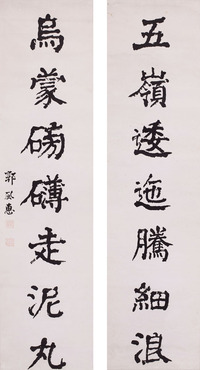 五嶺逶迤騰細浪
烏蒙磅礴走泥丸